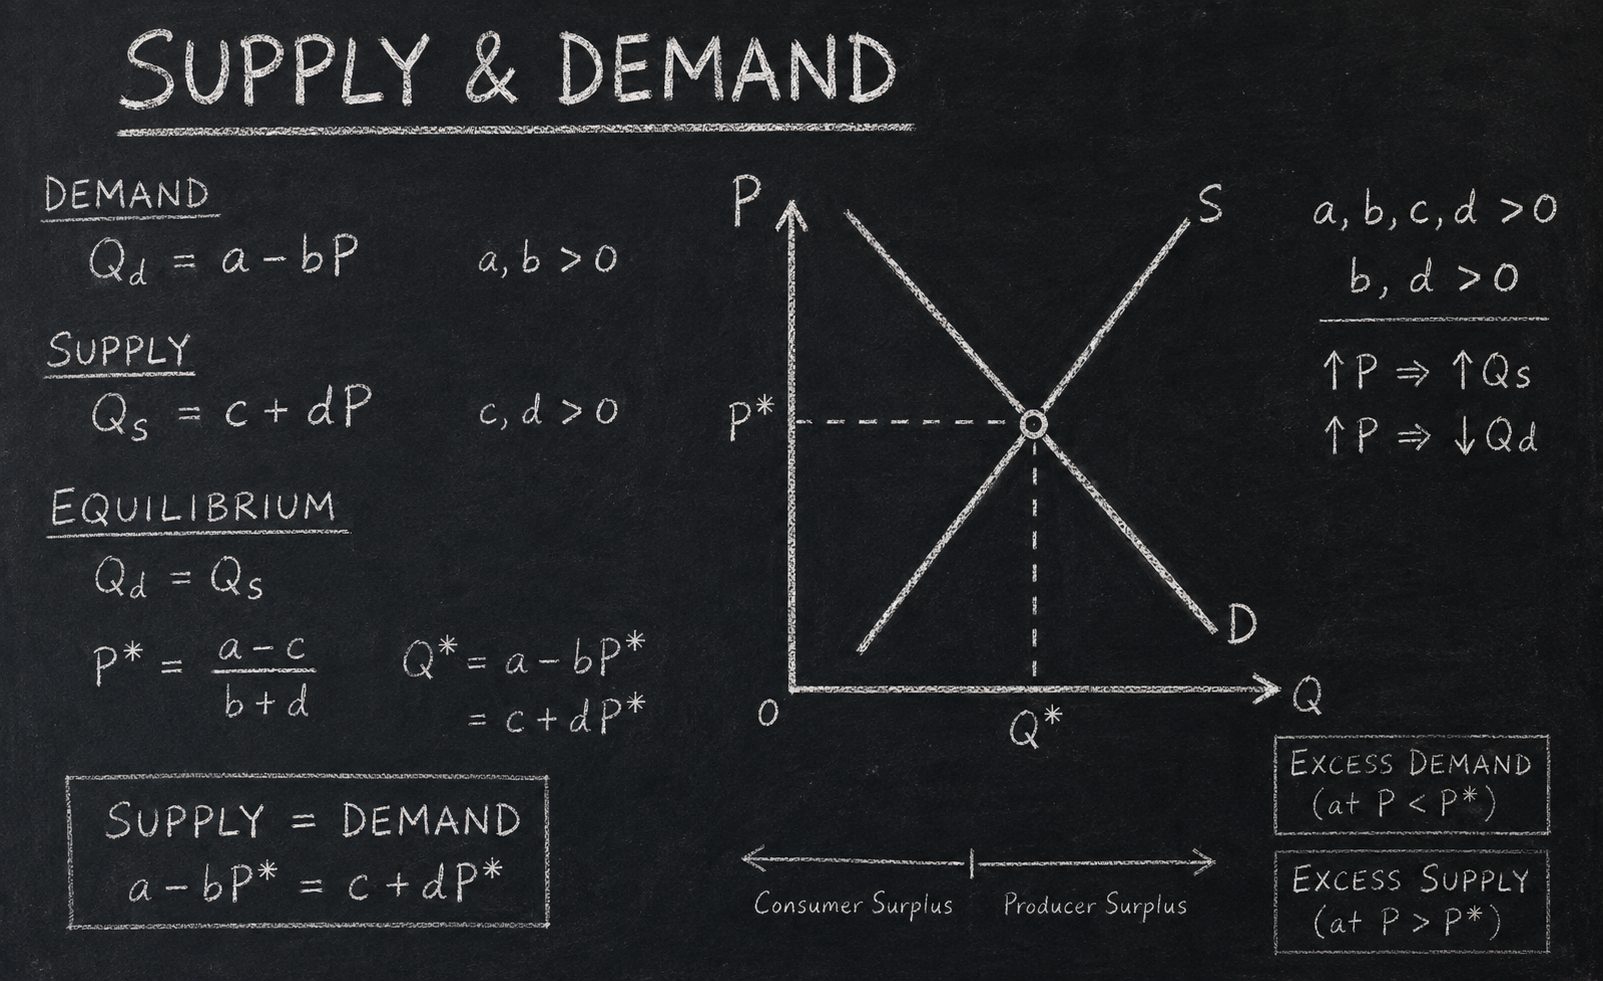 SUPPLY & DEMAND
DEMAND
Q_d = a - bP    a, b > 0
SUPPLY
Q_s = c + dP    c, d > 0
EQUILIBRIUM
Q_d = Q_s
P* = (a - c)/(b + d)
Q* = a - bP*
= c + dP*
SUPPLY = DEMAND
a - bP* = c + dP*
P
S
P*
D
O
Q*
Q
Consumer Surplus
Producer Surplus
a, b, c, d > 0
b, d > 0
↑P ⇒ ↑Qs
↑P ⇒ ↓Qd
EXCESS DEMAND
(at P < P*)
EXCESS SUPPLY
(at P > P*)